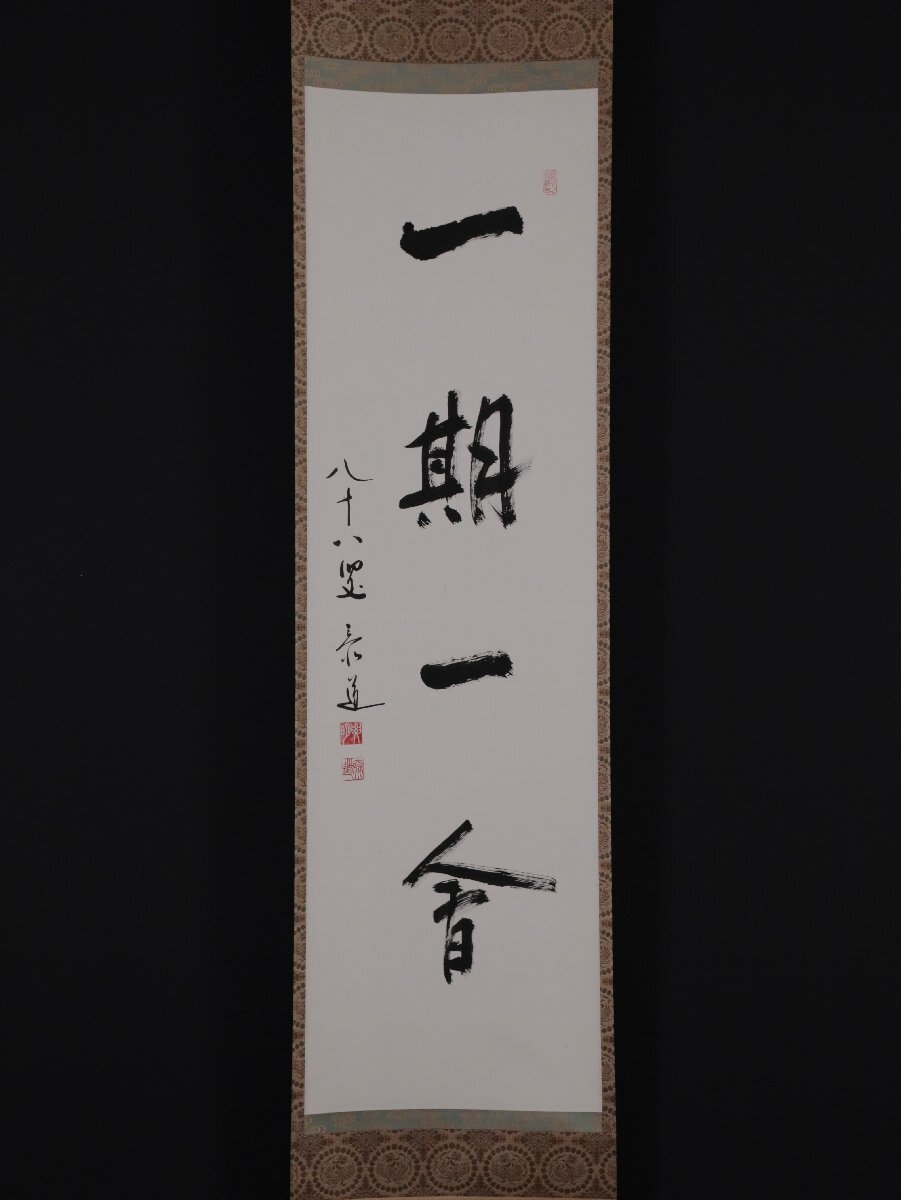 一期一會
八十八翁 泰道